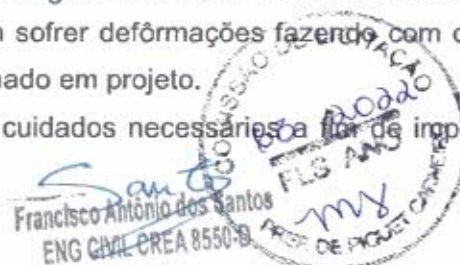 sofrer defôrmações fazendo com
nado em projeto.
cuidados necessários a fim de imp
COMISSÃO DE LICITAÇÃO
2022
FLS ANO
PREF DE PIQUET CARNEIRO
Francisco Antônio dos Santos
ENG CIVIL CREA 8550-D